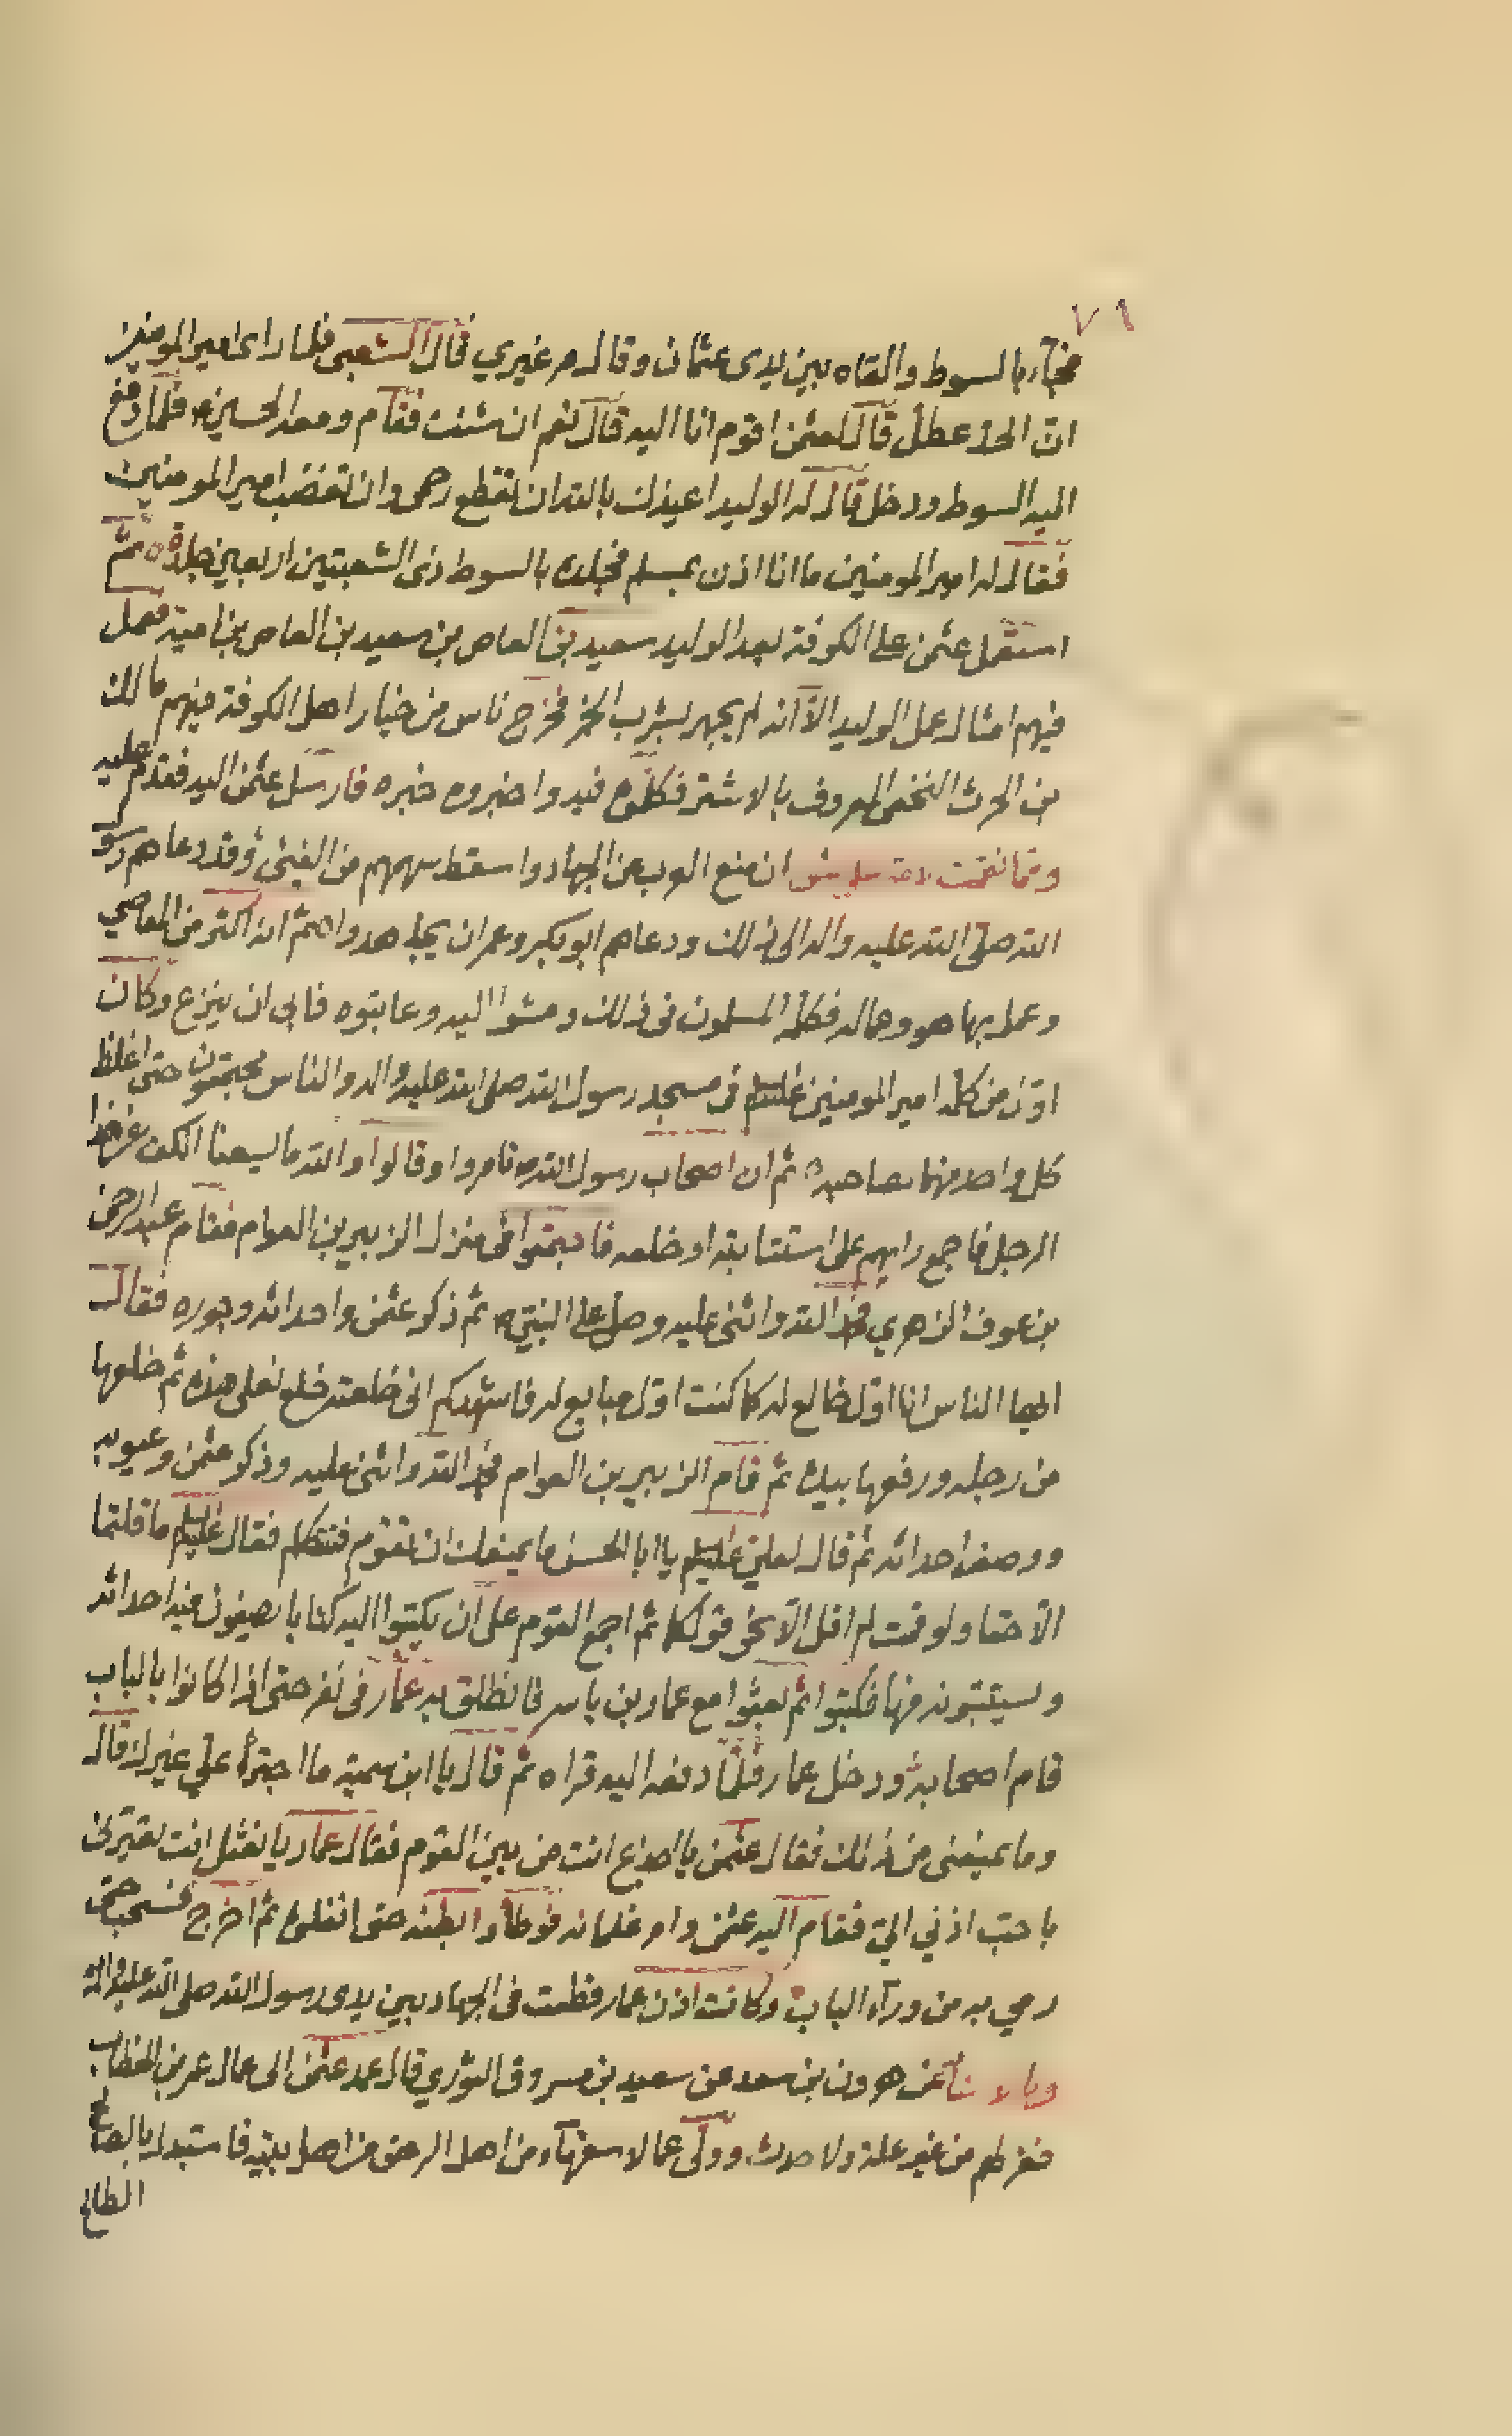 ٧١
فجاء بالسوط والقاه بين يدى عثمان وقال مر غيري قال الشعبى فلما راى امير المومنين
ان الحد عطل قال لعثمن اقوم انا اليه قال نعم ان شئت فقام ومعه الحسين فلما دفع
اليه السوط ودخل قال له الوليد اعيذك بالله ان تقطع رحمى وان تغضب امير المومنين
فقال له امير المومنين ما انا اذن بمسلم فجلده بالسوط ذى الشعبتين اربعين جلدة ثم
استعمل عثمن على الكوفة بعد الوليد سعيد بن العاص بن سعيد بن العاص بن امية فعمل
فيهم امثال عمل الوليد الا انه لم يجهر بشرب الخمر فخرج ناس من خيار اهل الكوفة فيهم مالك
بن الحرث النخعى المعروف بالاشتر فكلموه فيه واخبروه خبره فارسل عثمن اليه فقدم عليه
ومما نقمت ان منع العرب عن الجهاد واسقط سهمهم من الفيئ وقد دعاهم رسو
الله صلى الله عليه واله الى ذلك ودعاهم ابو بكر وعمر ان يجاهدوا ثم انه اكثر من المعاصي
وعمل بها هو وعماله فكلمه المسلمون فى ذلك ومشوا اليه وعاتبوه فابى ان ينزع وكان
اول من كلمه امير المومنين عليلم فى مسجد رسول الله صلى الله عليه واله والناس مجتمعون حتى اغلظ
كل واحد منهما بصاحبه ثم ان اصحاب رسول الله تامروا وقالوا والله ما يسعنا الكف عن هذا
الرجل فاجمع رايهم على استتابته او خلعه فاجتمعوا فى منزل الزبير بن العوام فقام عبد الرحمن
بن عوف الزهري فحمد الله واثنى عليه وصلى على النبى ثم ذكر عثمن واحداثه وجوره فقال
ايها الناس انا اول خالع له كما كنت اول مبايع له فاشهدكم انى خلعته خلع نعلى هذه ثم خلعها
من رجله ورفعها بيده ثم قام الزبير بن العوام فحمد الله واثنى عليه وذكر عثمن وعيوبه
ووصف احداثه ثم قال لعلي عليلم يا ابا الحسن ما يمنعك ان تقوم فتتكلم فقال عليلم ما قلتما
الا حقا ولو قمت لم اقل الا نحو قولكما ثم اجمع القوم على ان يكتبوا اليه كتابا يصيفون فيه احداثه
ويستعتبونه منها فكتبوا ثم بعثوا مع عمار بن ياسر فانطلق به عمار فى نفر حتى اذا كانوا بالباب
قام اصحابه ودخل عمار فلما دفعه اليه قراه ثم قال يا ابن سمية ما اجترأ علي غيرك قال
وما يمنعنى من ذلك فقال عثمن يا اجدع انت من بين القوم فقال عمار يا نعثل انت تعيرنى
باحب اذني الي فقام اليه عثمن وامر غلمانه فوطأوا بطنه حتى انفلق ثم اخرج فسحب حتى
رمي به من ورآء الباب وكانت اذن عمار قطعت فى الجهاد بين يدى رسول الله صلى الله عليه واله
وبالاسناد عن هرون بن سعد عن سعيد بن مسروق الثوري قال عمد عثمن الى عمال عمر بن الخطاب
فعزلهم من غير علة ولا حدث وولى عمالا سفهاء من اهل الرهق من اهل بيته فاستبدل بالصالح
الطالح